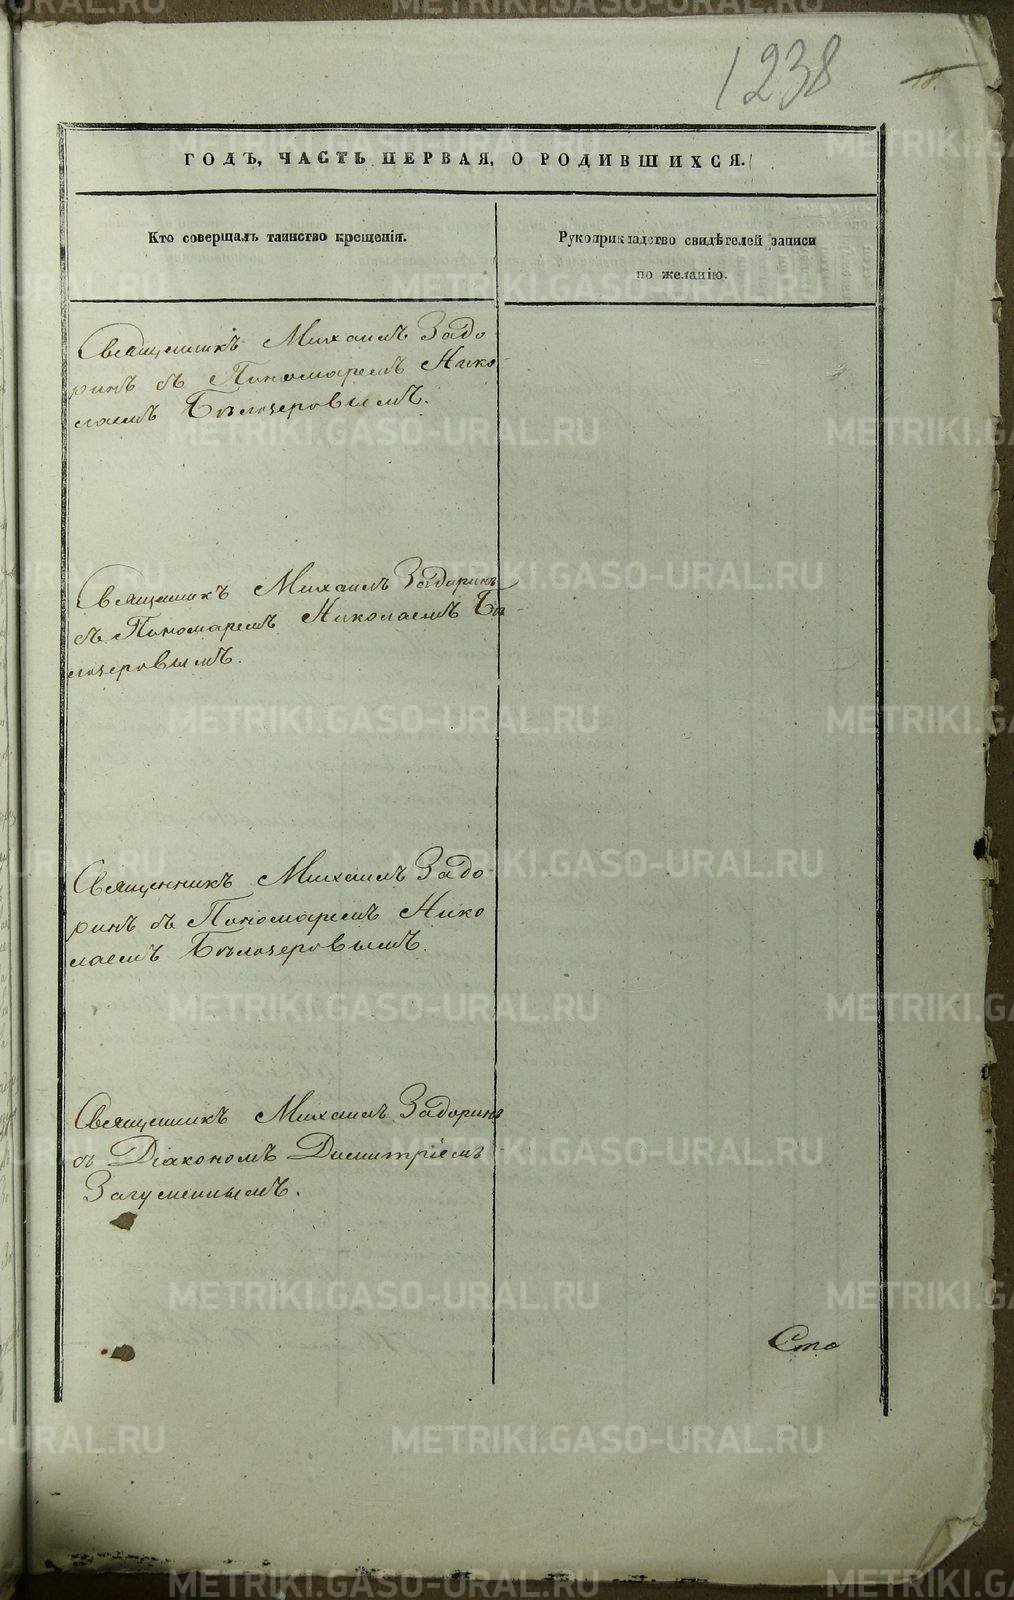 1238
18.
ГОДЪ, ЧАСТЬ ПЕРВАЯ, О РОДИВШИХСЯ.
Кто совершалъ таинство крещенія.
Рукоприкладство свидѣтелей записи
по желанію.
Священникъ Михаилъ Задо
ринъ съ Пономаремъ Нико
лаемъ Бѣлозеровымъ.
Священникъ Михаилъ Задоринъ
съ Пономаремъ Николаемъ Бѣ-
лозеровымъ.
Священникъ Михаилъ Задо
ринъ съ Пономаремъ Нико
лаемъ Бѣлозеровымъ.
Священникъ Михаилъ Задоринъ
съ Діакономъ Димитріемъ
Загуменнымъ.
Сто
METRIKI.GASO-URAL.RU